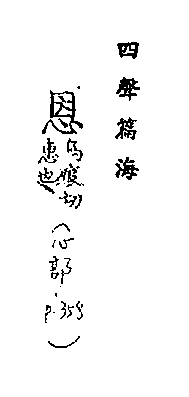 四聲篇海
恩
烏痕切
惠也
(心部
p.359)